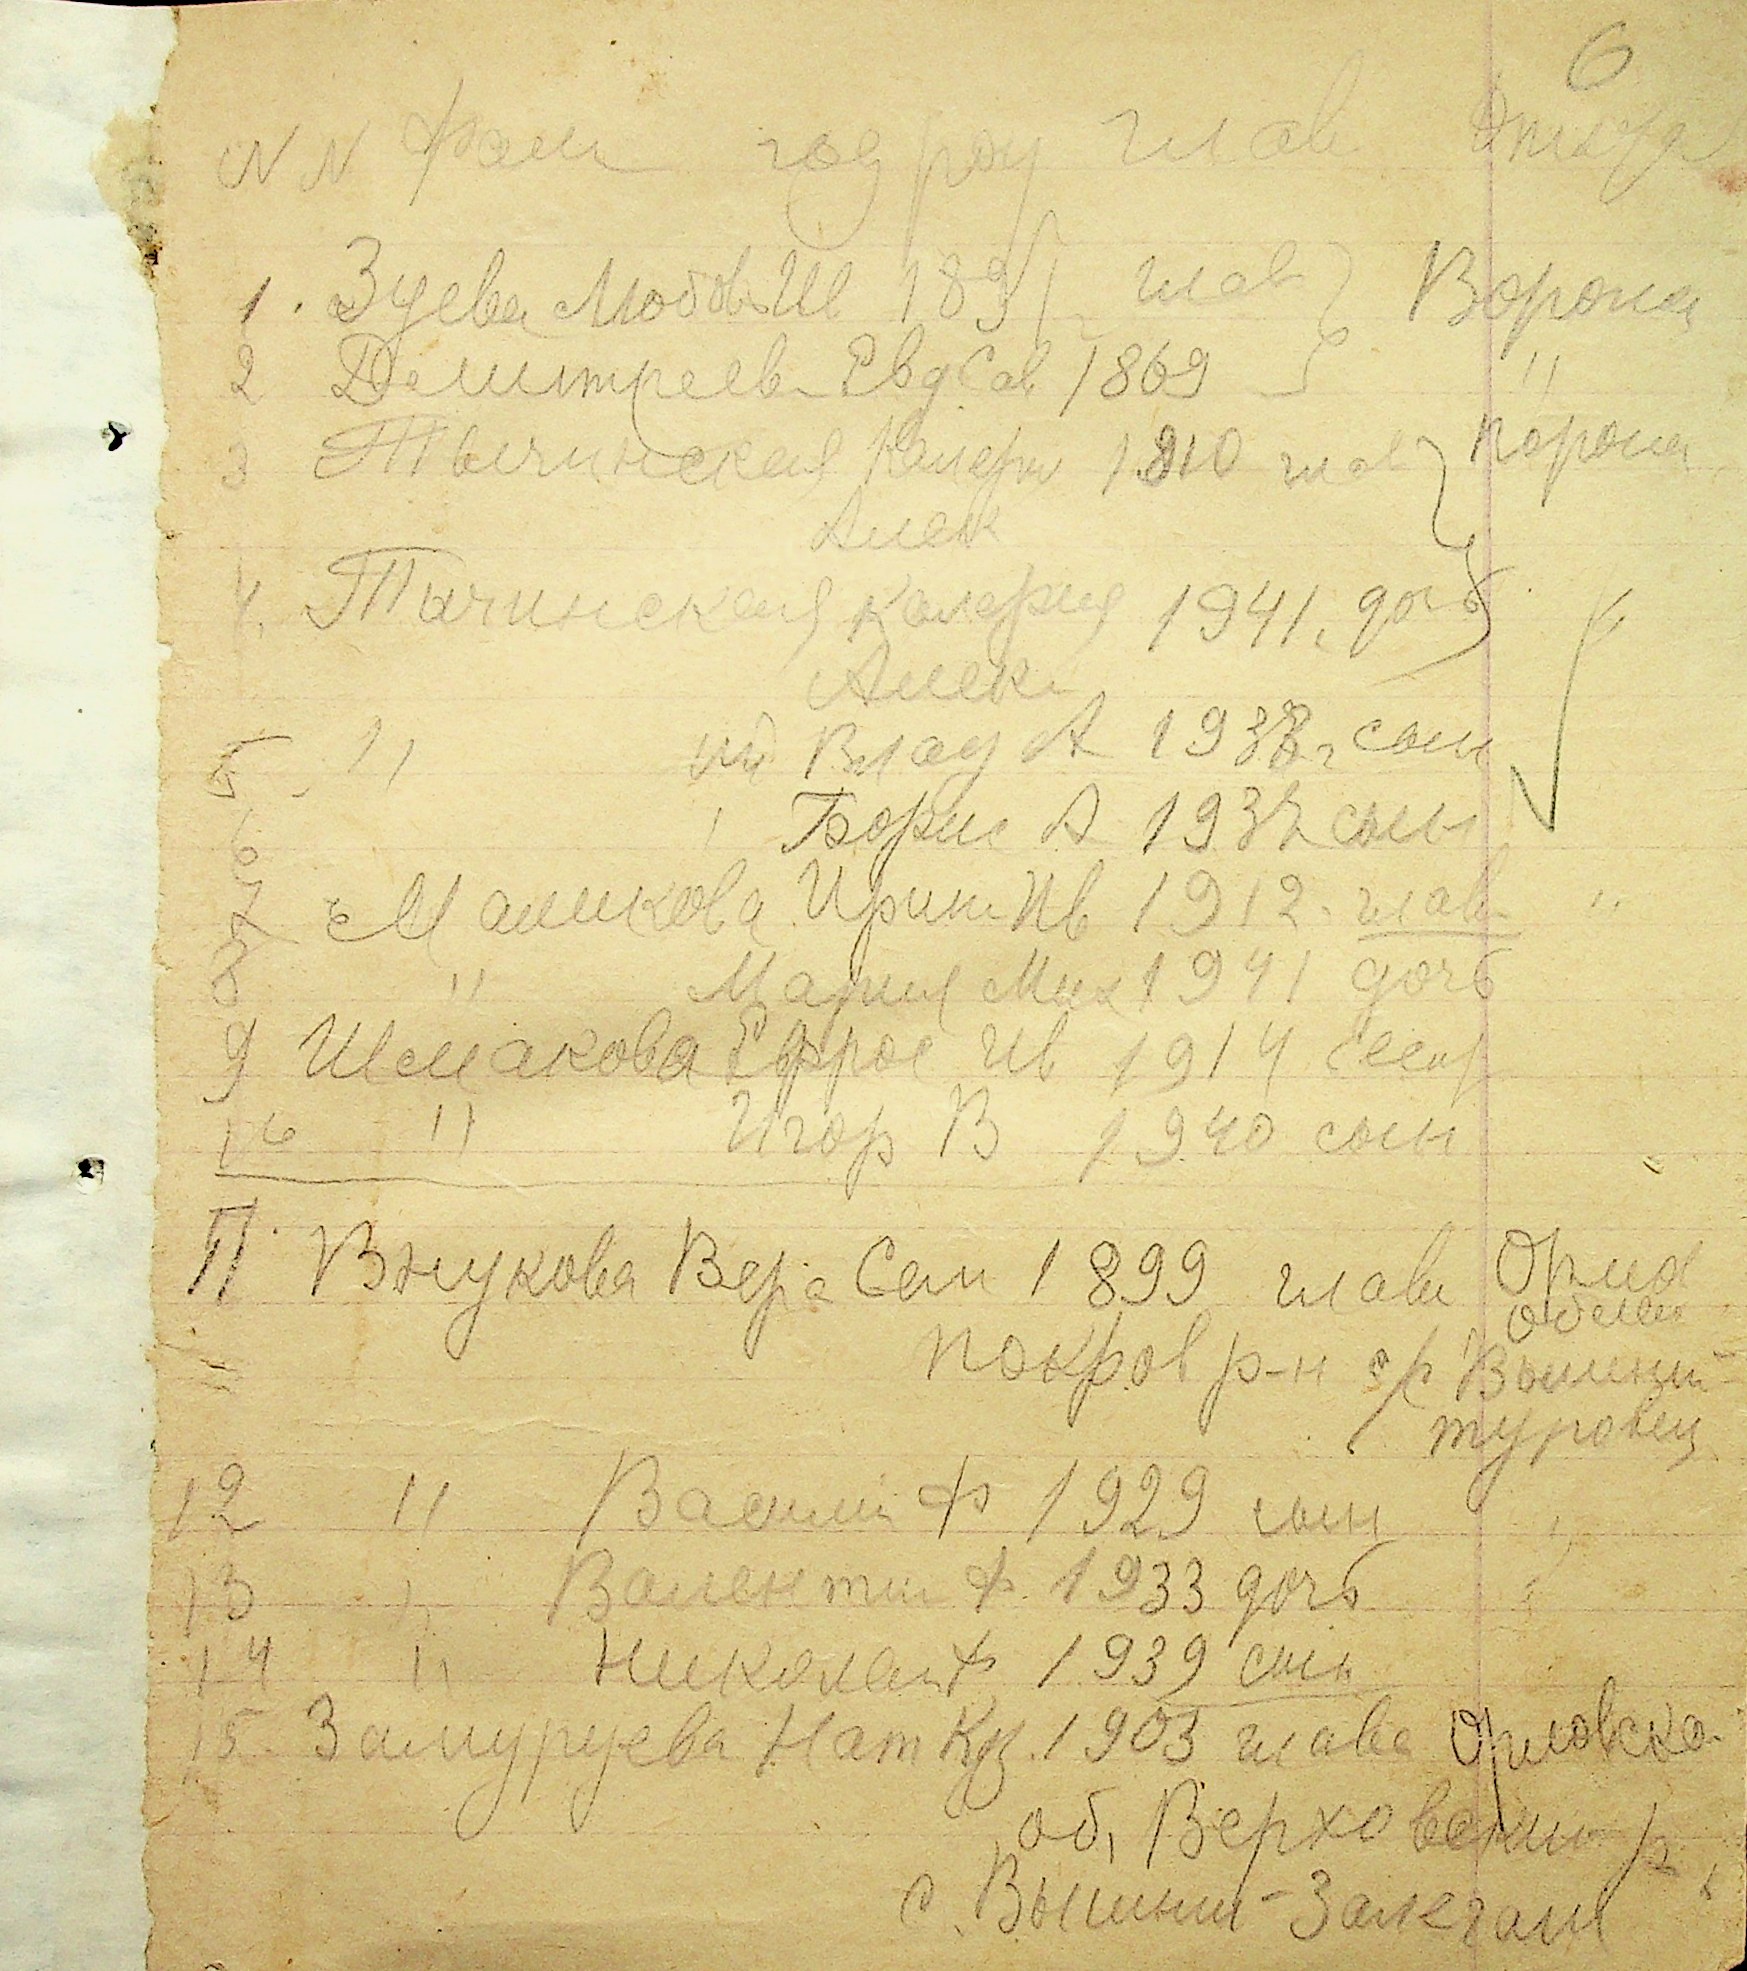 6
N N Фам год рож глав Откуда
1. Зуева Любовь Ив 1897 глав Вороне
2 Демитреев Евд Сав 1869 "
3 Тычинская Калери 1910 глав Вороне
Алек
4. Тычинская Калерия 1941 дочь
Алек
5 " ий Влад А 1938 г сын
6 " Борис А 1937 сын
7 Маликова Ирин Ив 1912 глав "
8 " Мария Мих 1941 дочь
9 Шмакова Ефрос Ив 1914 сест
10 " Игор В 1940 сын
11. Внукова Вера Сем 1899 глава Орлов
област
покров р-н с/с Вышний
туровец
12 " Васили Ф 1929 сын "
13 " Валентин Ф. 1933 дочь "
14 " Николай Ф 1939 сын
15. Замуруева Нат Куз. 1903 глава Орловско
об, Верховский р
с. Вышний-Залегощ